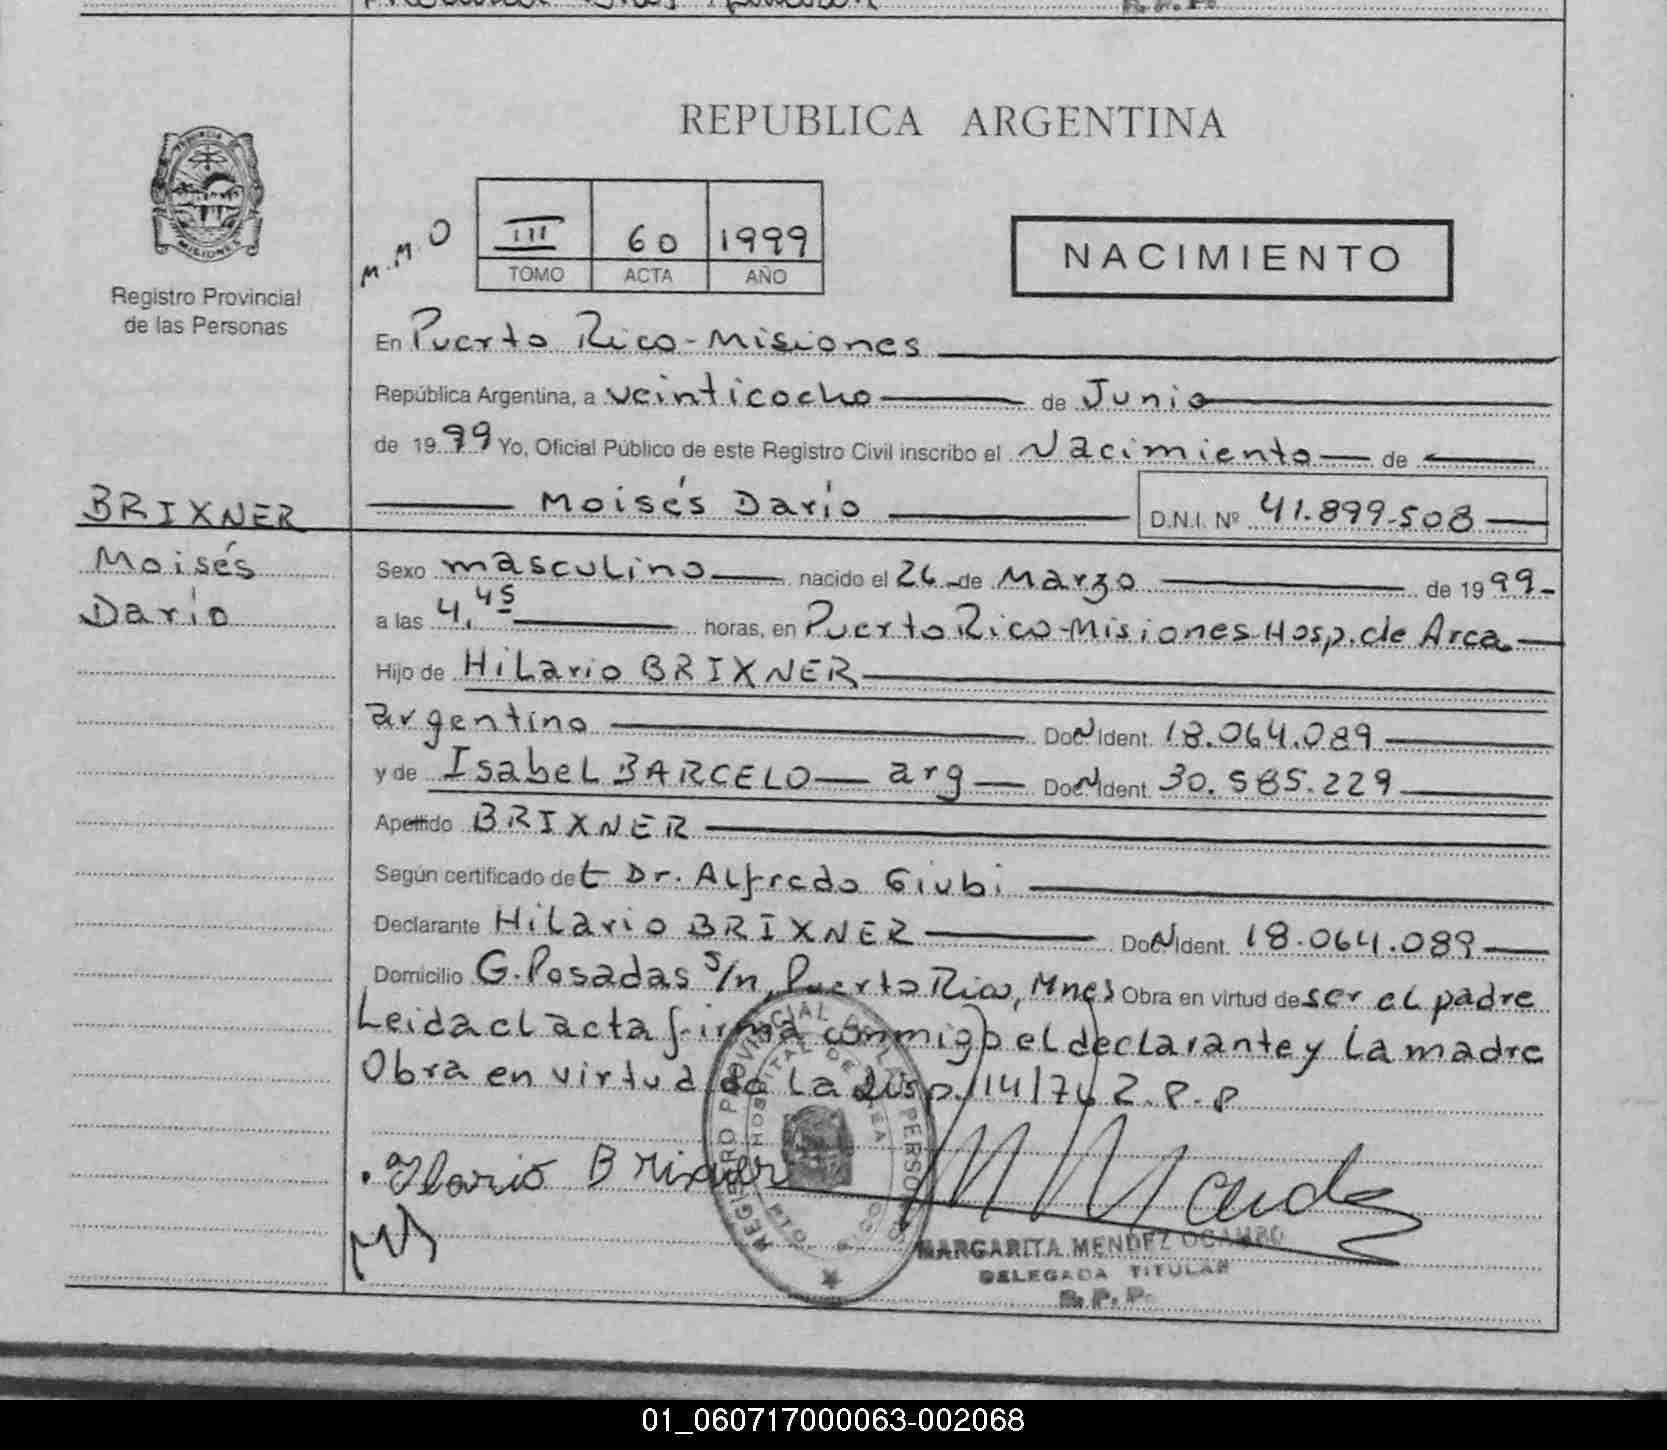 R.P.P.
REPUBLICA ARGENTINA
PROVINCIA
MISIONES
Registro Provincial
de las Personas
M.M.O
III 60 1999
TOMO ACTA AÑO
NACIMIENTO
En Puerto Rico-Misiones
República Argentina, a veinticocho de Junio
de 1999 Yo, Oficial Público de este Registro Civil inscribo el Nacimiento de
BRIXNER
Moisés
Darío
Moisés Darío D.N.I. Nº 41.899.508
Sexo masculino nacido el 26 de Marzo de 1999-
a las 4,45 horas, en Puerto Rico-Misiones-Hosp. de Arca
Hijo de Hilario BRIXNER
argentino Doc. Ident. 18.064.089
y de Isabel BARCELO arg Doc. Ident. 30.585.229
Apellido BRIXNER
Según certificado de t Dr. Alfredo Giubi
Declarante Hilario BRIXNER Doc. Ident. 18.064.089
Domicilio G. Posadas s/n, Puerto Rico, Mnes Obra en virtud de ser el padre
Leida el acta firma conmigo el declarante y la madre
Obra en virtud de la Disp. 14/76 R.P.P
Ilario Brixner
REGISTRO PROVINCIAL DE LAS PERSONAS
HOSPITAL DE LINEA
MARGARITA MENDEZ OCAMPO
DELEGADA TITULAR
R.P.P.
01_060717000063-002068